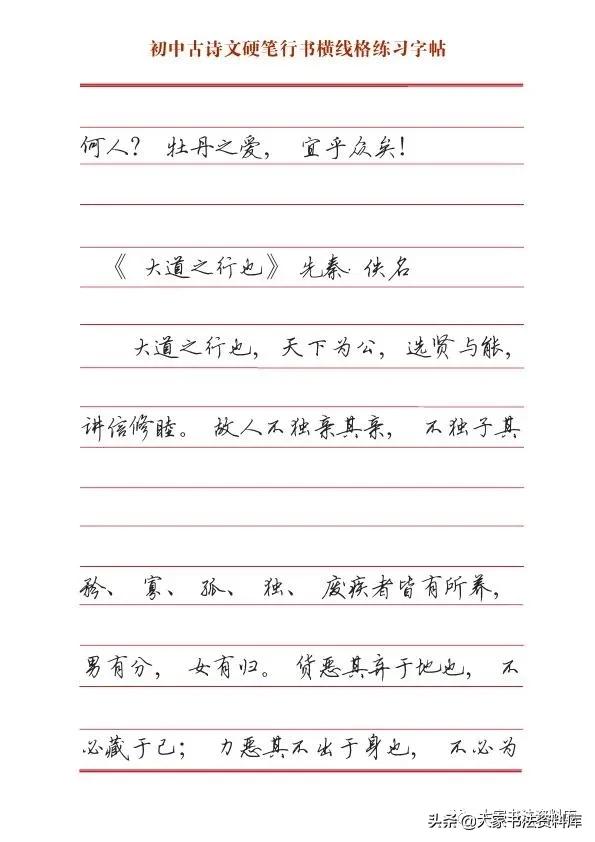 初中古诗文硬笔行书横线格练习字帖
何人？ 牡丹之爱， 宜乎众矣！
《 大道之行也》 先秦·佚名
大道之行也， 天下为公， 选贤与能，
讲信修睦。 故人不独亲其亲， 不独子其
矜、 寡、 孤、 独、 废疾者皆有所养，
男有分， 女有归。 货恶其弃于地也， 不
必藏于己； 力恶其不出于身也， 不必为
大家书法资料库
头条@大家书法资料库